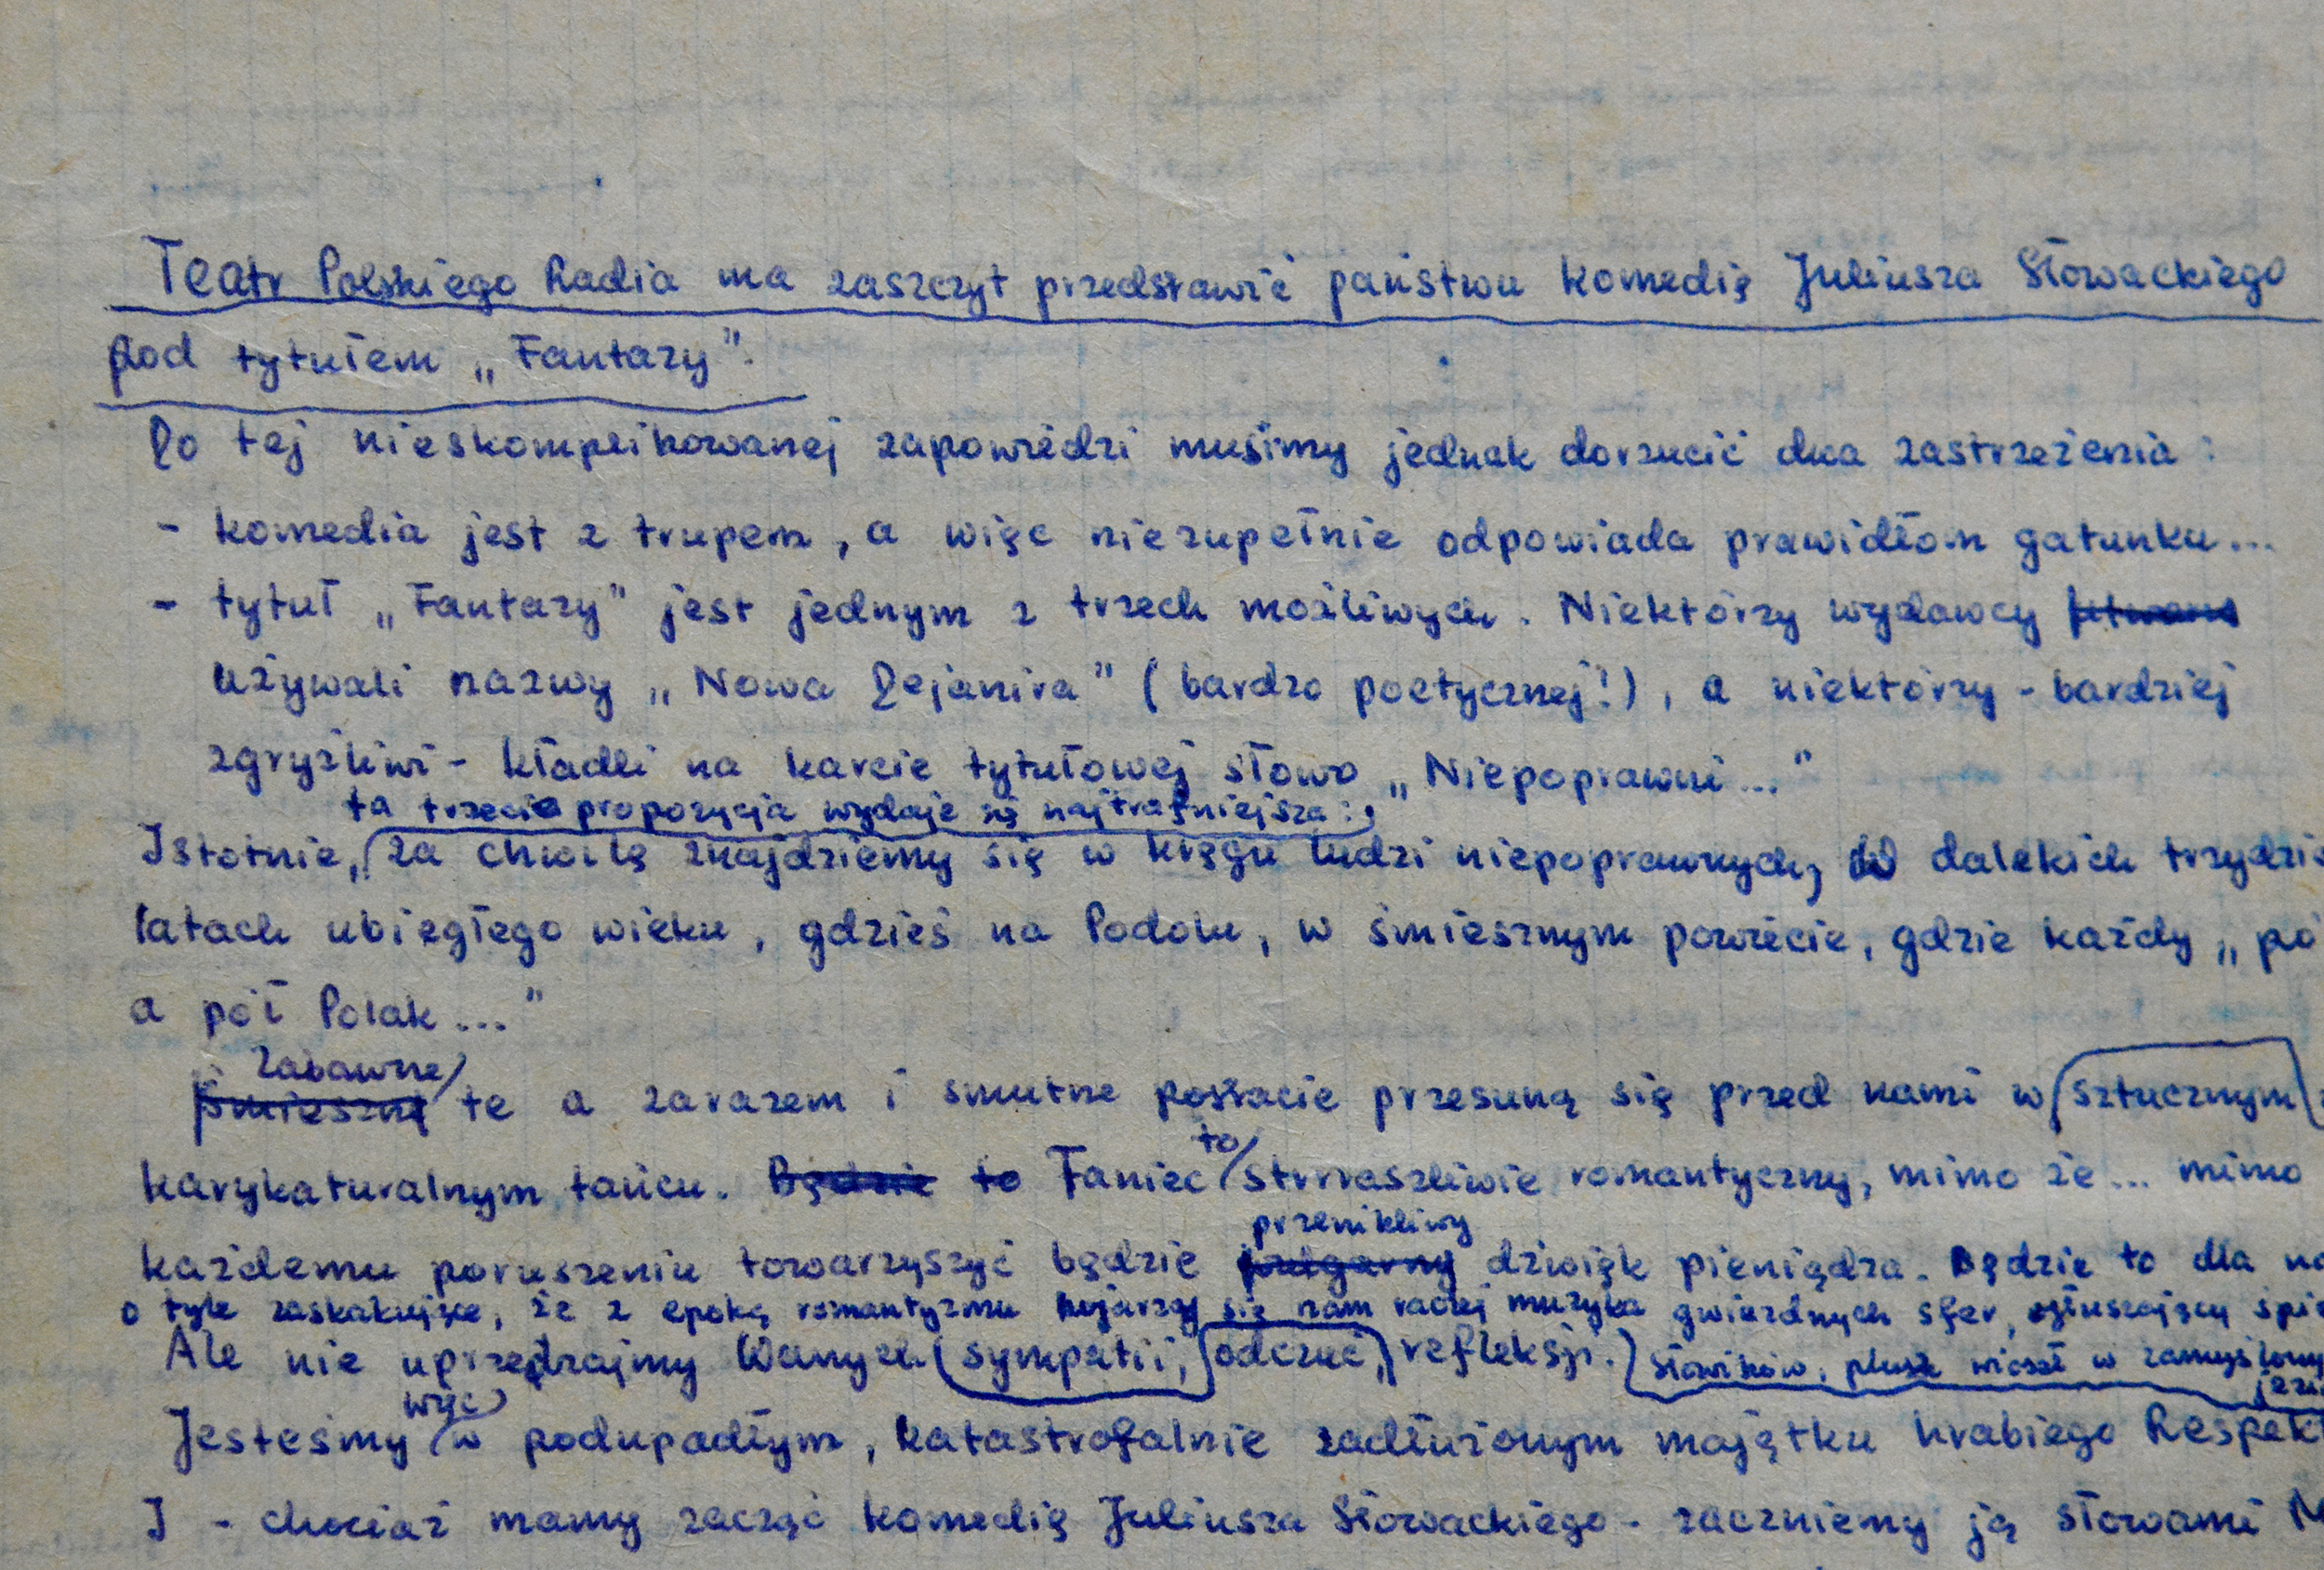 Teatr Polskiego Radia ma zaszczyt przedstawić państwu komedię Juliusza Słowackiego
pod tytułem „Fantazy”.
Do tej nieskomplikowanej zapowiedzi musimy jednak dorzucić dwa zastrzeżenia:
- komedia jest z trupem, a więc niezupełnie odpowiada prawidłom gatunku...
- tytuł „Fantazy” jest jednym z trzech możliwych. Niektórzy wydawcy
używali nazwy „Nowa Dejanira” (bardzo poetycznej!), a niektórzy - bardziej
zgryźliwi - kładli na karcie tytułowej słowo „Niepoprawni...”
ta trzecia propozycja wydaje się najtrafniejsza:
Istotnie, za chwilę znajdziemy się w kręgu ludzi niepoprawnych, w dalekich trzydzie
latach ubiegłego wieku, gdzieś na Podolu, w śmiesznym powiecie, gdzie każdy „pó
a pół Polak...”
Zabawne
śmieszne te a zarazem i smutne postacie przesuną się przed nami w sztucznym
karykaturalnym tańcu. Będzie to Taniec to strrraszliwie romantyczny, mimo że... mimo
przenikliwy
każdemu poruszeniu towarzyszyć będzie dźwięk pieniądza. Będzie to dla na
o tyle zaskakujące, że z epoką romantyzmu kojarzy się nam raczej muzyka gwiezdnych sfer, ogłuszający śpi
Ale nie uprzedzajmy Wanych sympatii, odczuć, refleksji. słowików, plusk wioseł w zamyślony
jezi
więc
Jesteśmy w podupadłym, katastrofalnie zadłużonym majątku hrabiego Respekt
I - chociaż mamy zacząć komedię Juliusza Słowackiego - zaczniemy ją słowami